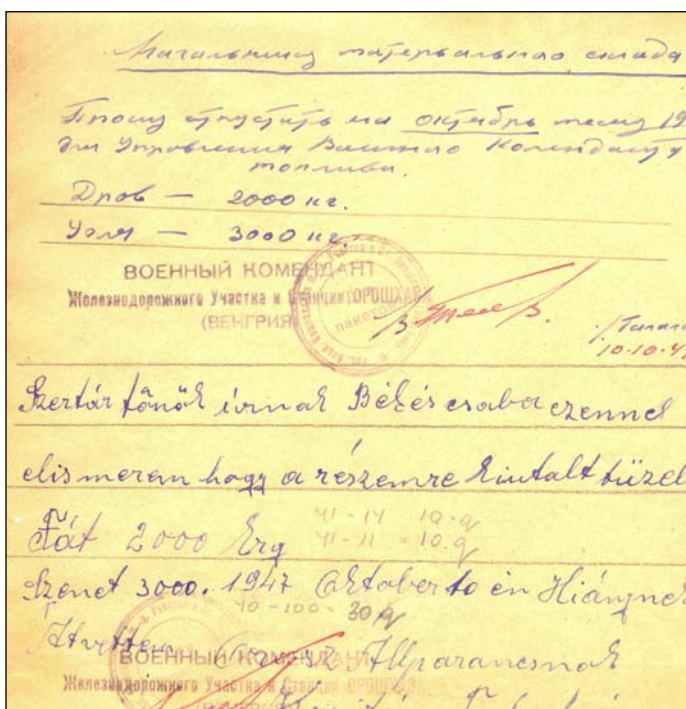 Начальнику материального склада
Прошу отпустить на октябрь месяц 19
для Управления Военного Коменданта
топлива.
Дров — 2000 кг.
Угля — 3000 кг.
ВОЕННЫЙ КОМЕНДАНТ
Железнодорожного Участка и Станции ОРОШХАЗА
(ВЕНГРИЯ)
10·10·4
Szertár főnök úrnak Békéscsaba ezennel
elismerem hogy a részemre kiutalt tüzel
Fát 2000 krg
41-14 10.q
41-11 = 10.q
Szenet 3000. 1947 Oktober 10 én
40-100= 30 q
ВОЕННЫЙ КОМЕНДАНТ
Железнодорожного Участка и Станции ОРОШХАЗА